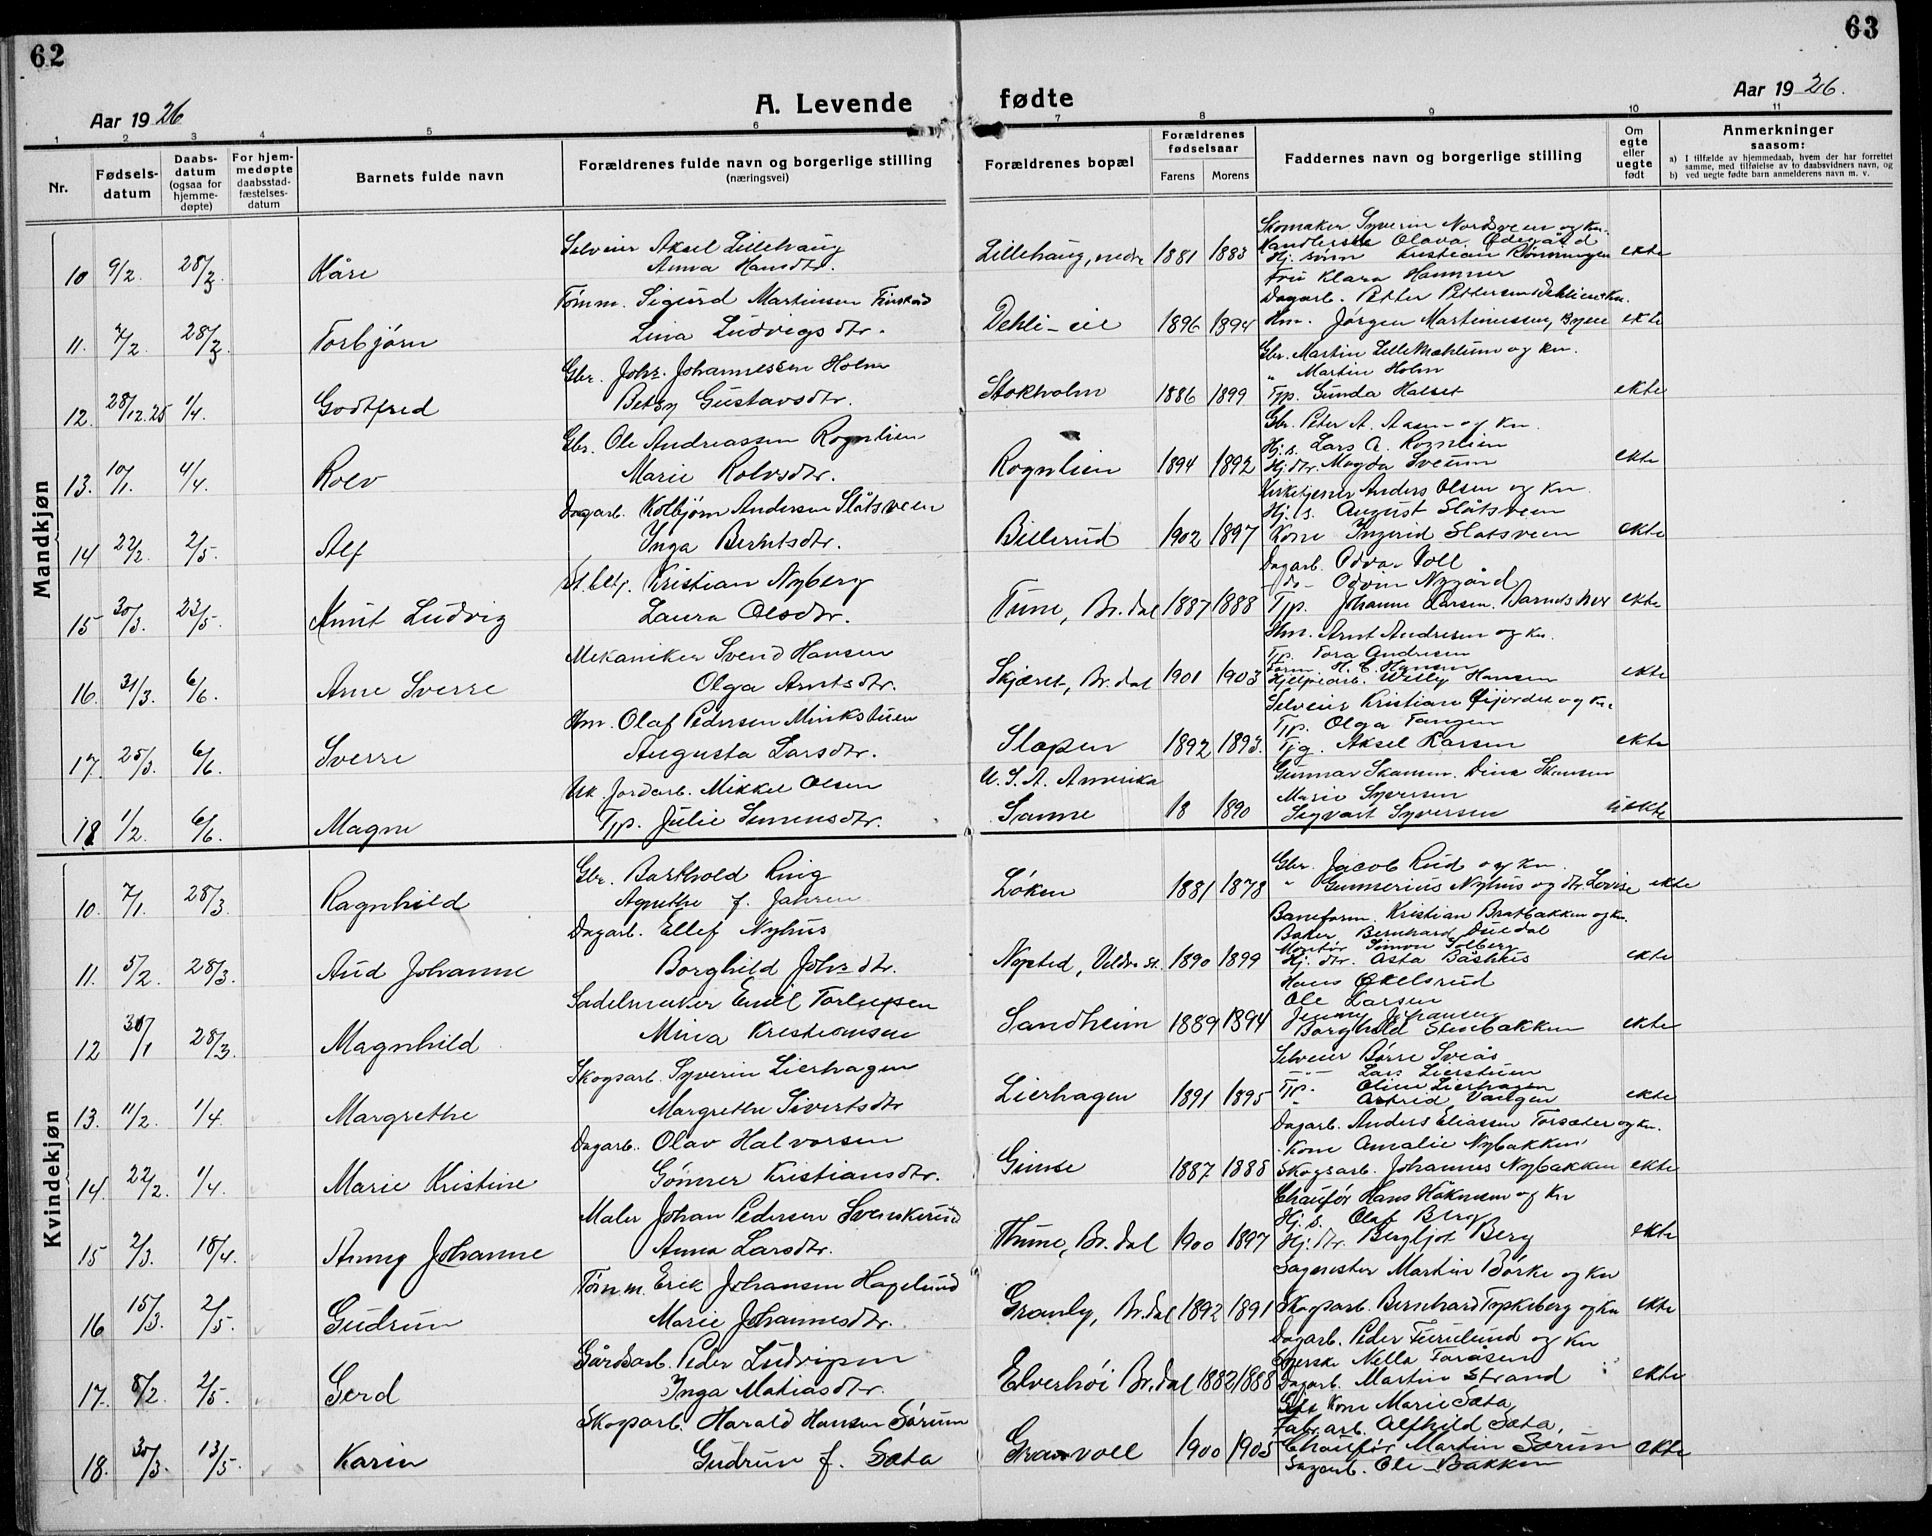 62
63
Aar 1926
A. Levende fødte
Aar 1926.
1 2 3 4 5 6 7 8 9 10 11
Nr.
Fødsels-datum
Daabs-datum (ogsaa for hjemme-døpte)
For hjem-medøpte daabsstad-fæstelses-datum
Barnets fulde navn
Forældrenes fulde navn og borgerlige stilling (næringsvei)
Forældrenes bopæl
Forældrenes fødselsaar
Farens Morens
Faddernes navn og borgerlige stilling
Om egte eller uegte født
Anmerkninger saasom:
a) I tilfælde av hjemmedaab, hvem der har forrettet samme, med tilføielse av to daabsvidners navn, og
b) ved uegte fødte barn anmelderens navn m. v.
Mandkjøn
Skomaker Syverin Nordsveen og kn.
Selveier Aksel Lillehaug
Olava Ødegård
10 9/2 28/3 Kåre Anna Hansdtr. Lillehaug, nedre 1881 1883 Hj. sønn Kristian Rønningen ekte
Fru Klara Hammer
Tømm. Sigurd Martinsen
Dagarb. Petter Pettersen Dehlieie kn.
11. 2/2. 28/3. Torbjørn Lina Ludvigsdtr. Dehli-eie 1896 1894 Hm. Jørgen Martinussen, ekte
Gbr. Martin Lille Mæhlum og kn.
Gbr. Johs. Johannessen Holm
" Martin Holm
12. 28/12.25 1/4. Godtfred Betsy Gustavsdtr. Stokholm 1886 1899 Tjp. Gunda Halset ekte
Gbr. Peter A. Aasen og kn.
Gbr. Ole Andreassen Rognlien
Hj. s. Lars A. Rognlien
13. 10/1. 4/4. Rolv Marie Rolvsdtr. Rognlien 1894 1892 Hj. dtr. Magda Sveum ekte
Kirketjener Anders Olsen og kn
Dagarb. Kolbjørn Andersen Slåtsveen
Hj. s. August Slåtsveen
14 22/2. 2/5. Alf Inga Berntsdtr. Billerud 1902 1897 Kone Ingerid Slåtsveen ekte
Dagarb. Odvar Voll
St. betj. Kristian Nyberg
- do - Odvin Nygård
15 30/3. 23/5. Knut Ludvig Laura Olsdtr. Tune, Br.dal 1887 1888 Tjp. Johanne Larsen. Barnets mor ekte
Hm. Arnt Andresen og kn.
Mekaniker Svend Hansen
Tjp. Tora Andresen
Form. H. C. Hansen
16. 31/3. 6/6. Arne Sverre Olga Arntsdtr. Skjæret, Br. dal 1901 1903 Hjelpearb. Willy Hansen ekte
Selveier Kristian og kn.
Hm. Olaf Pedersen Minkstuen
Tjp. Olga Tangen
17. 25/3. 6/6. Sverre Augusta Larsdtr. Slapen 1892 1893. Tjg. Aksel Karsen ekte
Uk. Jordarb. Mikkel Olsen U. S. A. Amerika Gunnar Skansen. Dina Skansen
Marie Syversen
18 1/2. 6/6. Magne Tjp. Julie Simensdtr. Sanne 18 1890 Sigvart Syversen uekte
Kvindekjøn
Gbr. Barthold Ring Gbr. Jacob Rud og kn.
10. 7/1. 28/3. Ragnhild Agnethe f. Jahren Løken 1881 1878 " Gunnerius Nyhus og dtr. Lovise ekte
Dagarb. Ellef Nyhus
Baneform. Kristian Bratbakken og kn.
Baker Bernhard Dueldal
Montør Simon Solberg
11. 5/2. 28/3. Aud Johanne Borghild Johs dtr. Nysted, Veldre st. 1890 1899 Hj. dtr. Asta Båshus ekte
Sadelmaker Emil Torleifsen
Hans Økelsrud
Ole Larsen
Jenny Johansen
12 30/1 28/3. Magnhild Mina Kristiansen Sandheim 1889 1894 Borghild Stenbakken ekte
Selveier Børre Sveås
Skogsarb. Syverin Lierhagen
-"- Lars Lierstuen
Tjp. Oline Lierhagen
13. 11/2. 1/4 Margrethe Margrethe Sivertsdtr Lierhagen 1891 1895 " Astrid Vangen ekte
Dagarb. Olav Halvorsen
Dagarb. Anders Eliassen Torsæter og kn.
Kone Amalie Nybakken
14. 22/2. 1/4. Marie Kristine Gønner Kristiansdtr. Gimse 1887 1888 Skogsarb. Johannes Nybakken ekte
Maler Johan Pedersen Svenskerud
Chaufør Hans Håkensen og kn
Hj. s. Olaf Berg
15 2/3. 18/4. Anny Johanne Anna Larsdtr. Thune, Br. dal 1900 1897 Hj. dtr. Bergljot Berg ekte
Tømm. Erik Johansen Hagelund
Sagmester Martin Børke og kn
16 15/3. 2/5. Gudrun Marie Johannesdtr. Granly, Br.dal 1892 1891 Skogsarb. Bernhard Topkeberg og kn ekte
Gårdsarb. Peder Ludvigsen
Dagarb. Peder Furulund og kn
Syerske Nella Foråsen
17. 8/2. 2/5. Gerd Inga Matiasdtr. Elverhøi Br.dal 1882 1888 Dagarb. Martin Strand ekte
Skogsarb. Harald Hansen Sørum
Kone Marie Sæta
Fabr.arb. Alfhild Sæta
18. 30/3. 13/5. Karin Gudrun f. Sæta Granvoll 1900 1905 Chaufør Martin Sørum ekte
Sagarb. Ole Bakken